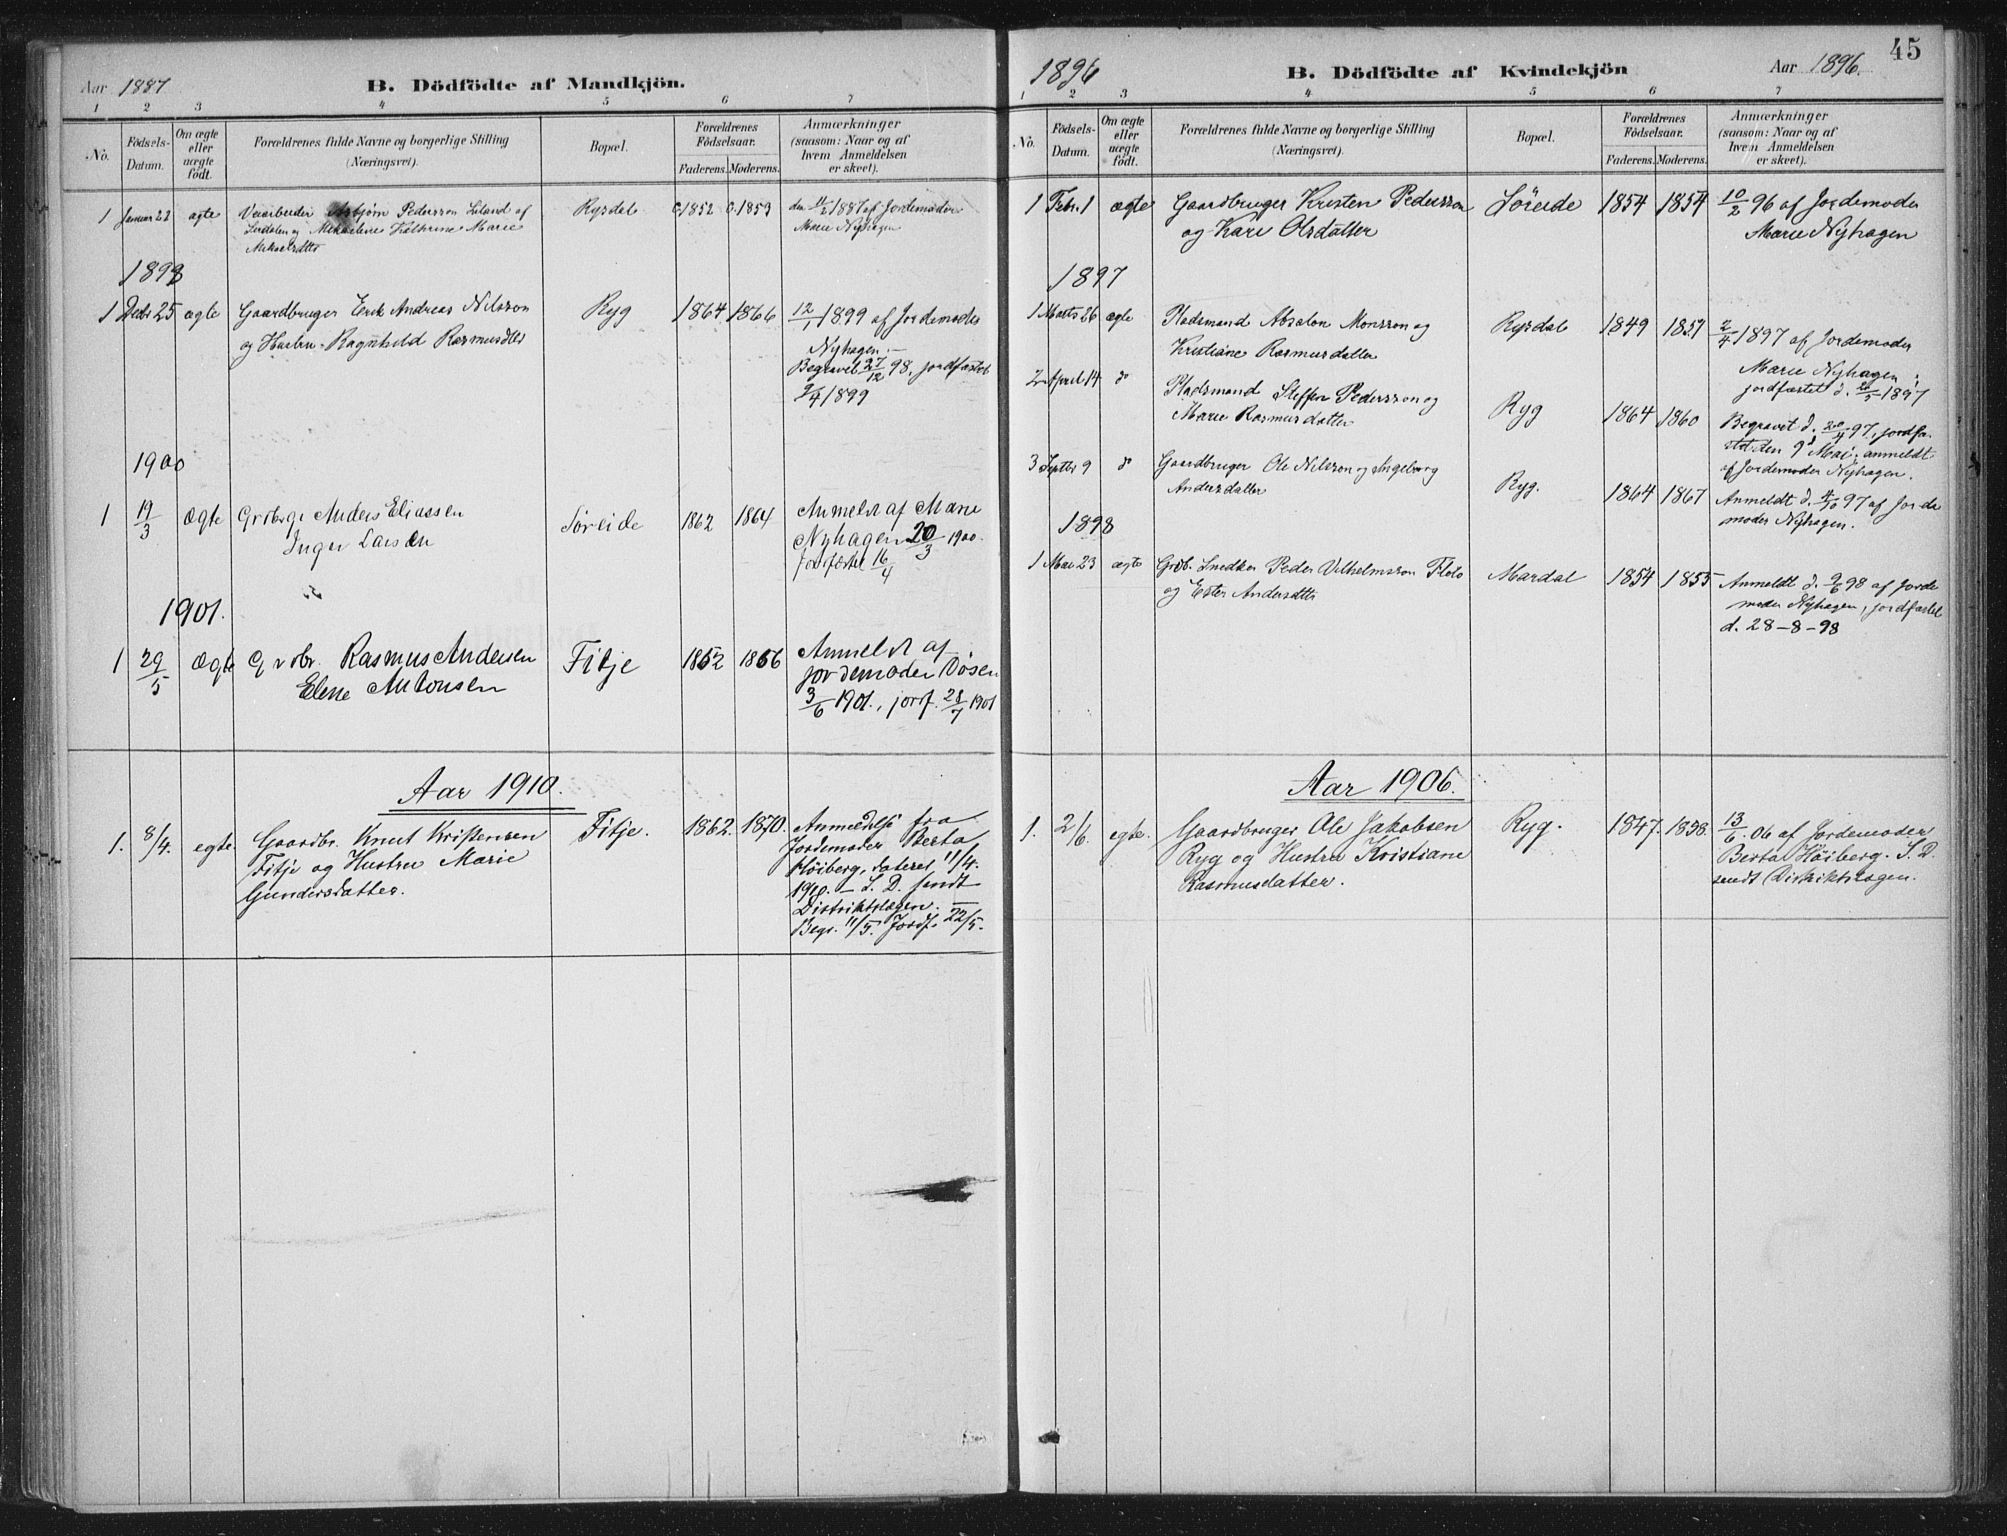 Aar 1887
B. Dödfödte af Mandkjön.
1 2 3 4 5 6 7
No.
Födsels-Datum.
Om ægte eller uægte födt.
Forældrenes fulde Navne og borgerlige Stilling
(Næringsvei).
Bopæl.
Forældrenes Födselsaar.
Faderens. Moderens.
Anmærkninger
(saasom: Naar og af
hvem Anmeldelsen
er skeet).
1 Januar 22 ægte Veiarbeider Asbjørn Pedersson Liland af Rysdal 1852 1859 den 11/2 1887 af Jordemoder
og Mikaeline Kathrine Marie Marie Nyhagen
Mikaelsdtter
1898
1 Decbr 25 ægte Gaardbruger Erik Andreas Nilsson Ryg 1864 1866 12/1 1899 af Jordemoder
og Hustru Ragnhild Rasmusdtter Nyhagen.—
Begravet 27/12 98, jordfæstet
9/4 1899
1900
1 19/3 Ægte Grdbrgr Anders Eliassen Søreide 1862 1864 Anmeldt af Marie
Inger Larsen Nyhagen 20/3 1900.
jordfæstet 16/4
1901.
1 29/5 Ægte Grdbr. Rasmus Andersen Fitje 1852 1866 Anmeldt af
Elene Antonsen jordemoder Døsen
3/6 1901., jordf. 28/7 1901
Aar 1910.
1. 8/4. egte. Gaardbr. Knut Kristensen Fitje. 1862. 1870. Anmeldelse fra
Fitje og Hustru Marie Jordemoder Berta
Gundersdatter. Höiberg, dateret 11/4.
1910. — S. D. sendt
Distriktslægen. —
Begr. 11/5. Jordf. 22/5.
45
1896
B. Dödfödte af Kvindekjön
Aar 1896.
1 2 3 4 5 6 7
No.
Födsels-Datum.
Om ægte eller uægte födt.
Forældrenes fulde Navne og borgerlige Stilling
(Næringsvei).
Bopæl.
Forældrenes Födselsaar.
Faderens. Moderens.
Anmærkninger
(saasom: Naar og af
hvem Anmeldelsen
er skeet).
1 Febr. 1 ægte Gaardbruger Kristen Pedersson Søreide 1854 1854 10/2 96 af Jordemoder
og Kari Olsdatter Marie Nyhagen
1897
1 Marts 26 ægte Pladsmand Absalon Monsson og Rysdal 1849 1857 2/4 1897 af Jordemoder
Kristiane Rasmusdatter Marie Nyhagen;
jordfæstet d. 26/5 1897
2 April 14 do Pladsmand Steffen Pedersson og Ryg 1864 1860 Begravet d. 20/4 97, jordfæ-
Marie Rasmusdatter stet den 9de Mai; anmeldt
af Jordemoder Nyhagen.
3 Septbr 9 do Gaardbruger Ole Nilsson og Ingeborg Ryg. 1864 1867 Anmeldt d. 4/10 97 af Jorde
Andersdatter moder Nyhagen.
1898
1 Mai 23 ægte Grdb. Snedker Peder Vilhelmsson Flolo Mardal 1854 1855 Anmeldt d. 9/6 98 af Jorde
og Ester Andersdtter moder Nyhagen, jordfæstet
d. 28-8-98
Aar 1906.
1. 2/6. egte. Gaardbruger Ole Jakobsen Ryg. 1847. 1858. 13/6. 06 af Jordemoder
Ryg og Hustru Kristiane Berta Höiberg. S. D.
Rasmusdatter. sendt Distriktslægen.